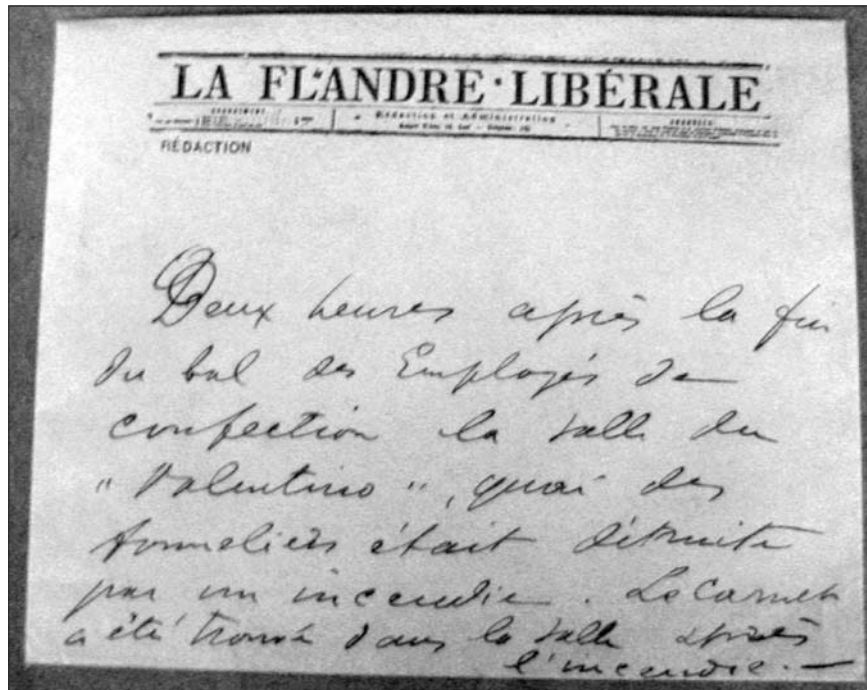 LA FLANDRE LIBÉRALE
Rédaction et Administration
RÉDACTION
Deux heures après la fin
du bal des Employés de
confection la salle du
"Valentino", quai des
tonneliers était détruite
par un incendie. Le Carnet
a été trouvé dans la salle après
l'incendie. —